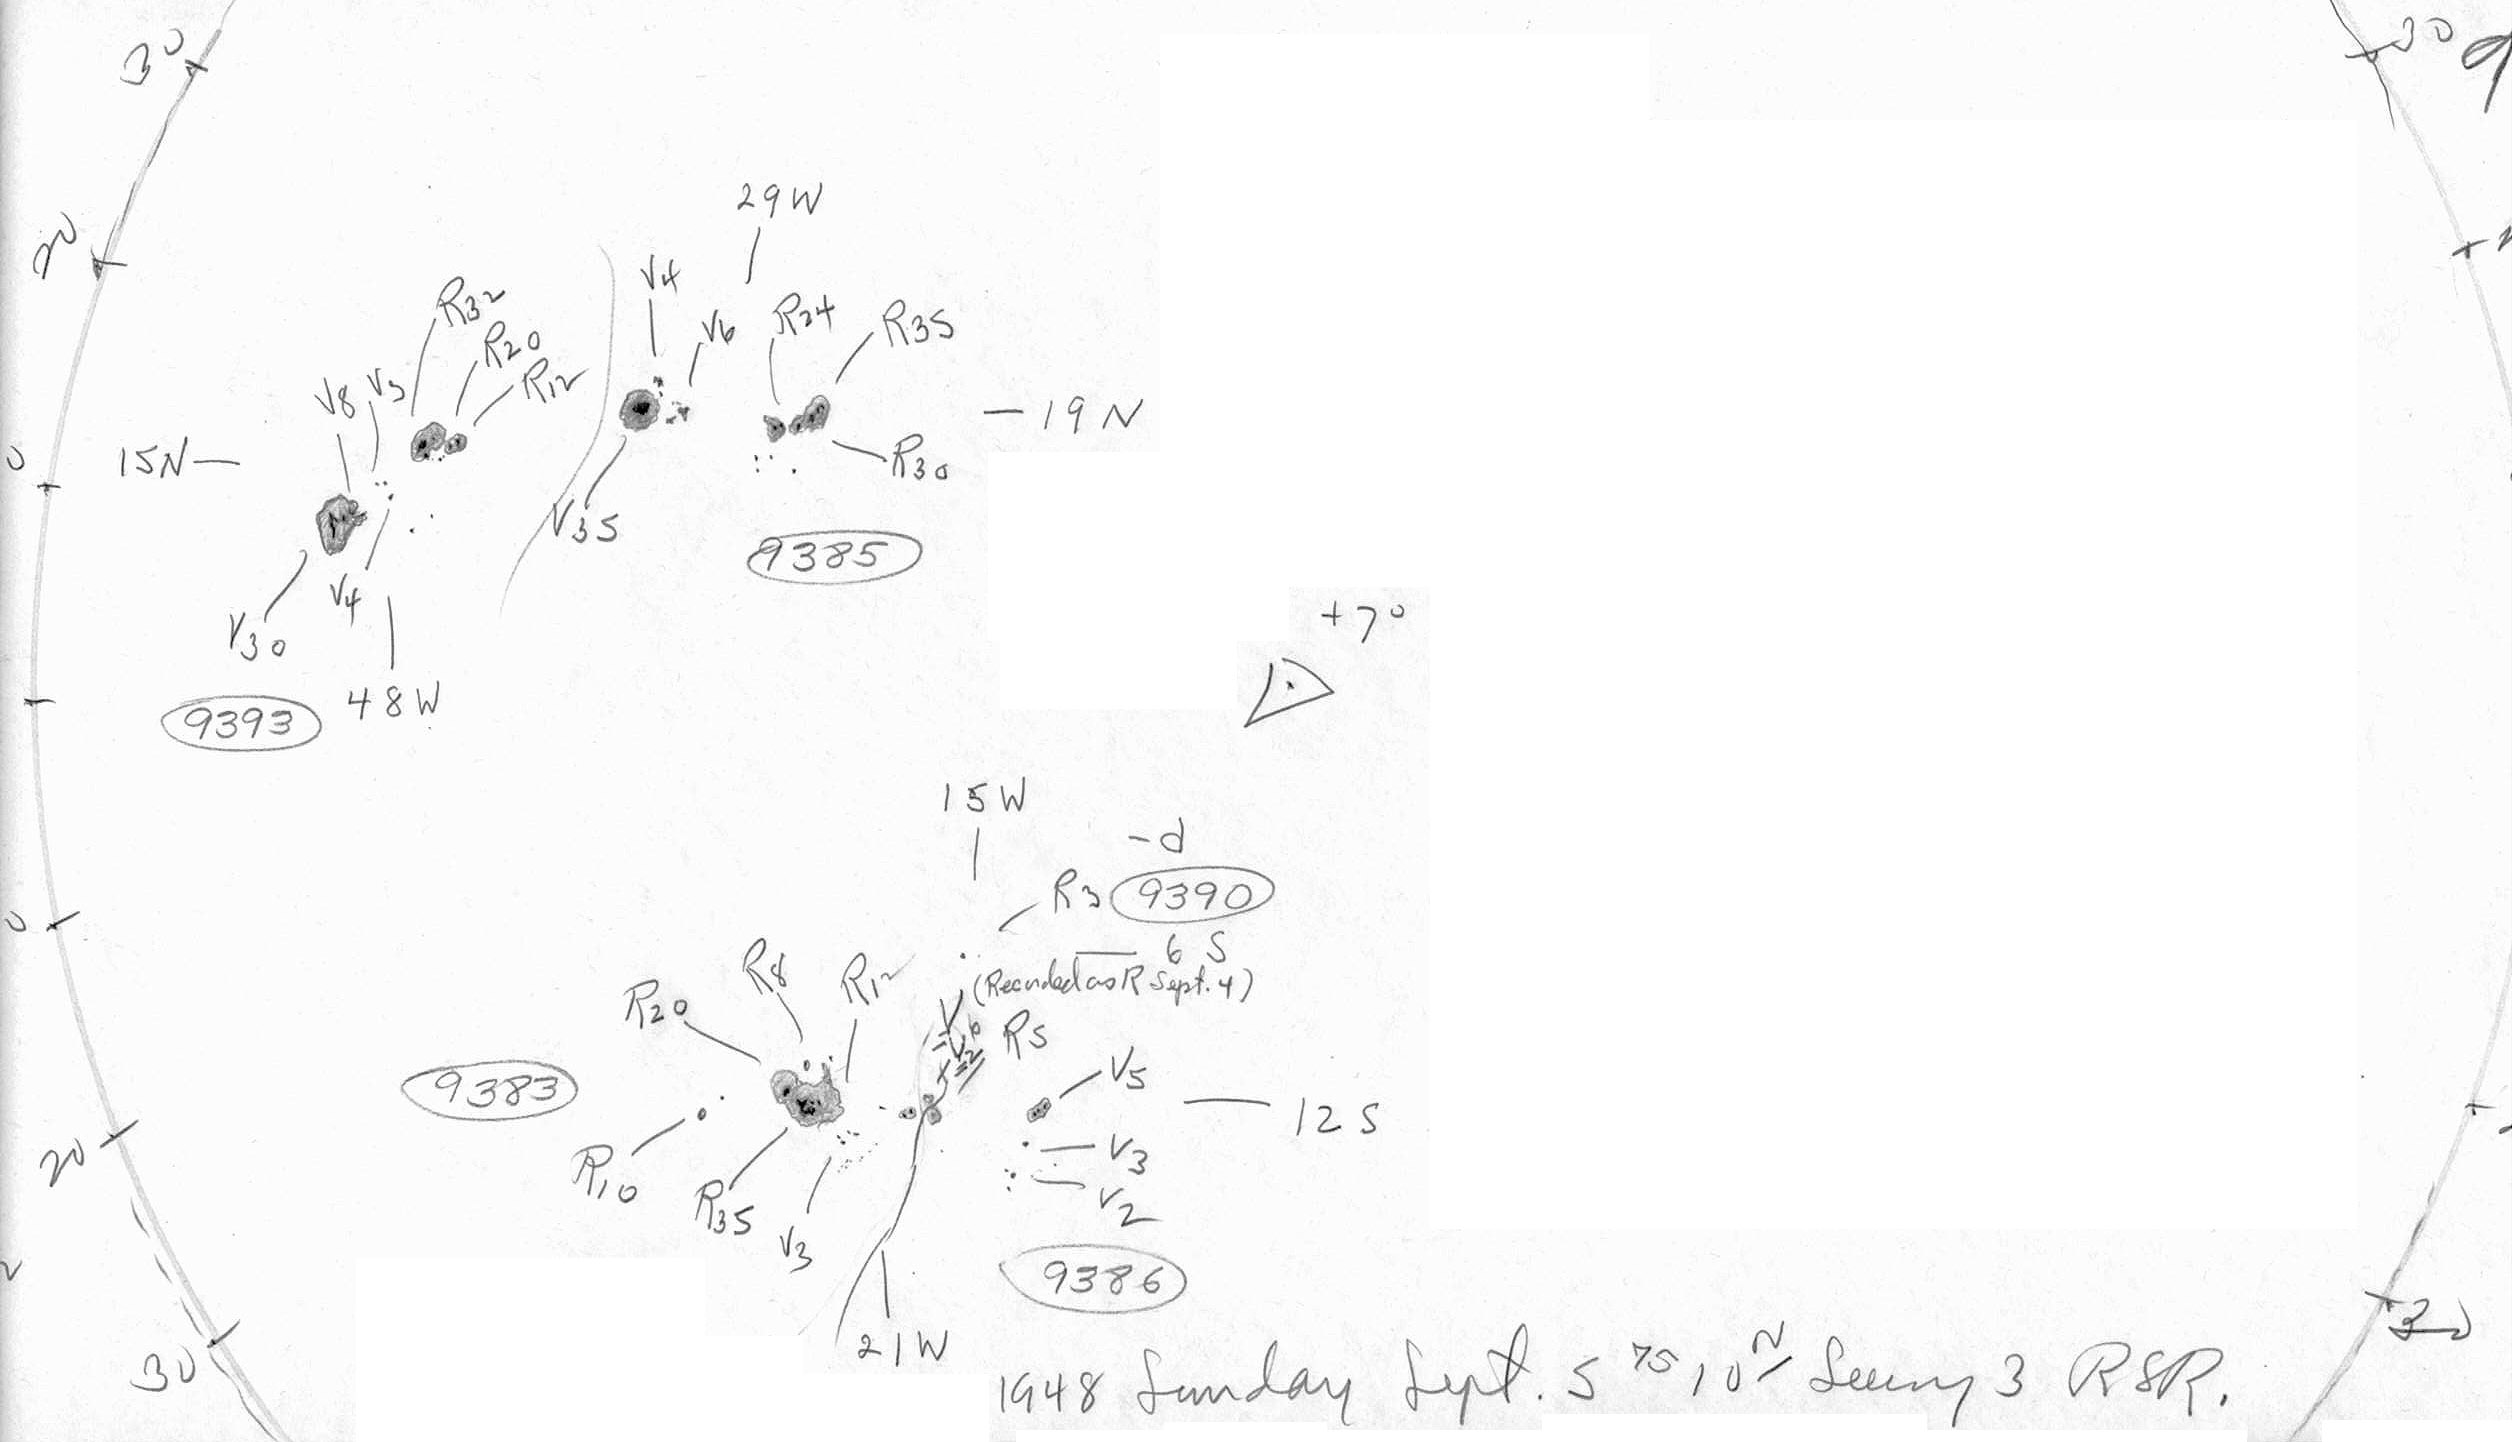 30
30
9
29W
20
V4
R32
V6
R24
R35
R20
V8
V3
R12
19N
15N
R30
0
V35
9385
V4
+7°
V30
48W
9393
15W
-d
R3
9390
0
6 S
(Recorded as R Sept. 4)
R8
R12
R20
V
V2
R5
V5
9383
12S
V3
20
R10
V2
R35
V3
9386
21W
30
30
1948 Sunday Sept. 5 Seeing 3 RSR.